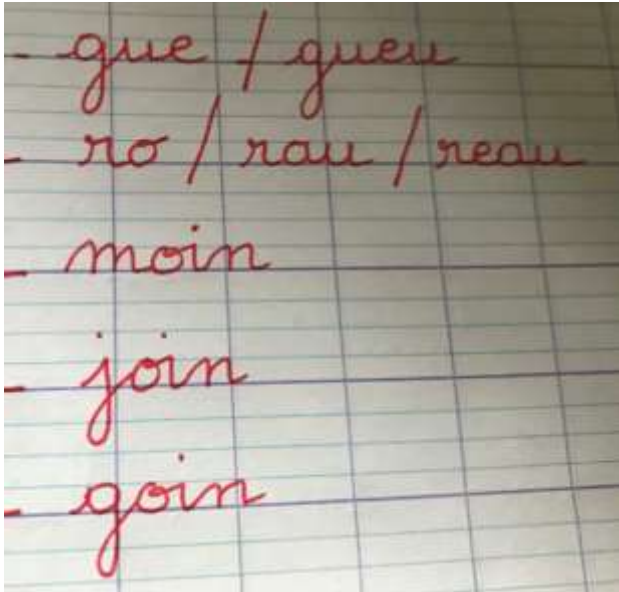 - gue / gueu
- ro / rau / reau
- moin
- join
- goin